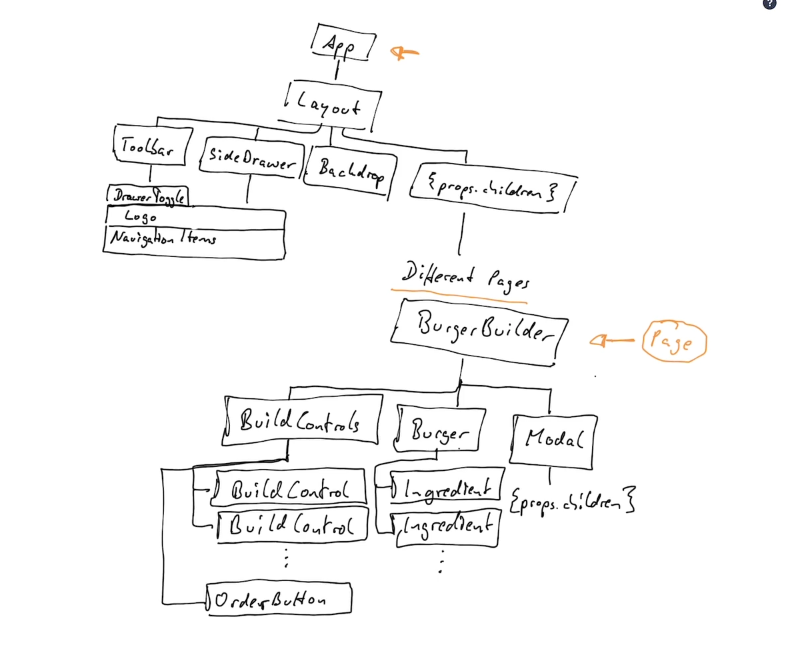 ?
App
Layout
Toolbar
SideDrawer
Backdrop
{props.children}
DrawerToggle
Logo
Navigation Items
Different Pages
BurgerBuilder
Page
BuildControls
Burger
Modal
BuildControl
Ingredient
{props.children}
BuildControl
Ingredient
⋮
⋮
OrderButton